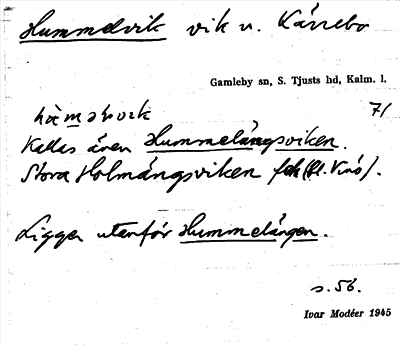 Hummelvik vik v. Kärrebo
Gamleby sn, S. Tjusts hd, Kalm. l.
71
Kallas även Hummelängsviken.
Stora Holmängsviken fek (Kl. Vinö).
Ligger utanför Hummelängen.
s. 56.
Ivar Modéer 1945